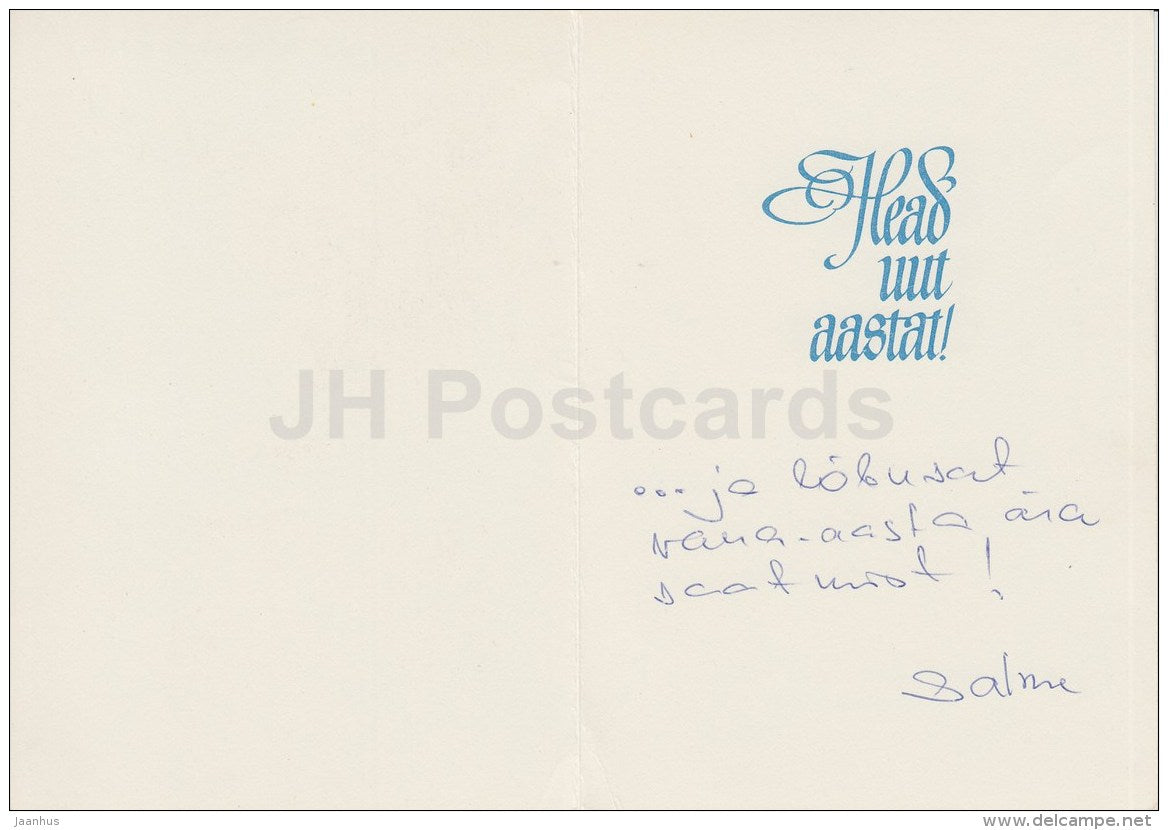 Head
uut
aastat!
JH Postcards
... ja lõbusat
vana-aasta ära
saatmist!
Salme
Jaanhus
delcampe.net